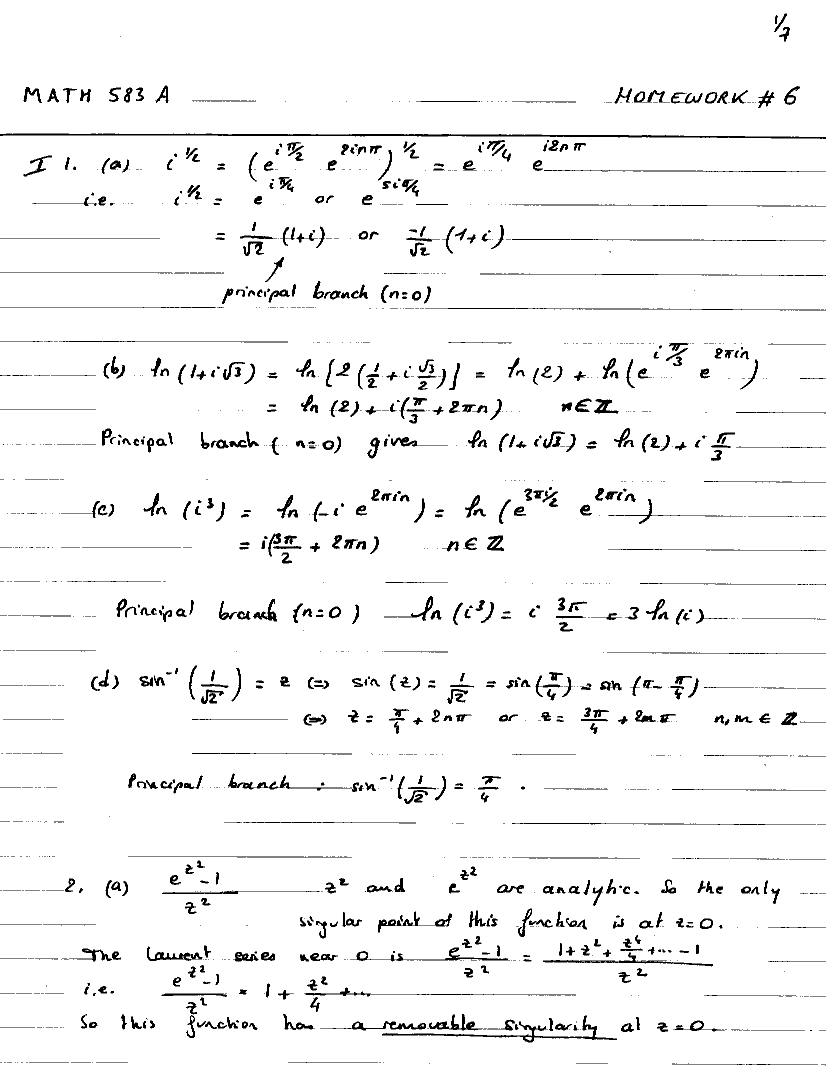 1/7
MATH 583 A HOMEWORK # 6
I 1. (a) i^{1/2} = (e^{iπ/2} e^{2inπ})^{1/2} = e^{iπ/4} e^{i2nπ}
i.e. i^{1/2} = e^{iπ/4} or e^{5iπ/4}
= 1/√2 (1+i) or -1/√2 (1+i)
principal branch (n=0)
(b) ln (1+i√3) = ln [2 (1/2 + i √3/2)] = ln (2) + ln (e^{iπ/3} e^{2πin})
= ln (2) + i(π/3 + 2πn) n∈ℤ
Principal branch ( n=0) gives ln (1+i√3) = ln (2) + i π/3
(c) ln (i³) = ln (-i e^{2πin}) = ln (e^{3πi/2} e^{2πin})
= i(3π/2 + 2πn) n∈ℤ
Principal branch (n=0) ln (i³) = i 3π/2 = 3 ln (i)
(d) sin⁻¹ (1/√2) = z ⇔ sin (z) = 1/√2 = sin(π/4) = sin (π - π/4)
⇔ z = π/4 + 2nπ or z = 3π/4 + 2mπ n,m ∈ ℤ
Principal branch : sin⁻¹(1/√2) = π/4 .
2. (a) (e^{z²}-1)/z² z² and e^{z²} are analytic. So the only
singular point of this function is at z=0.
The Laurent series near 0 is (e^{z²}-1)/z² = (1+z²+z⁴/4+...-1)/z²
i.e. (e^{z²}-1)/z² = 1 + z²/4 +...
So this function has a removable singularity at z=0.